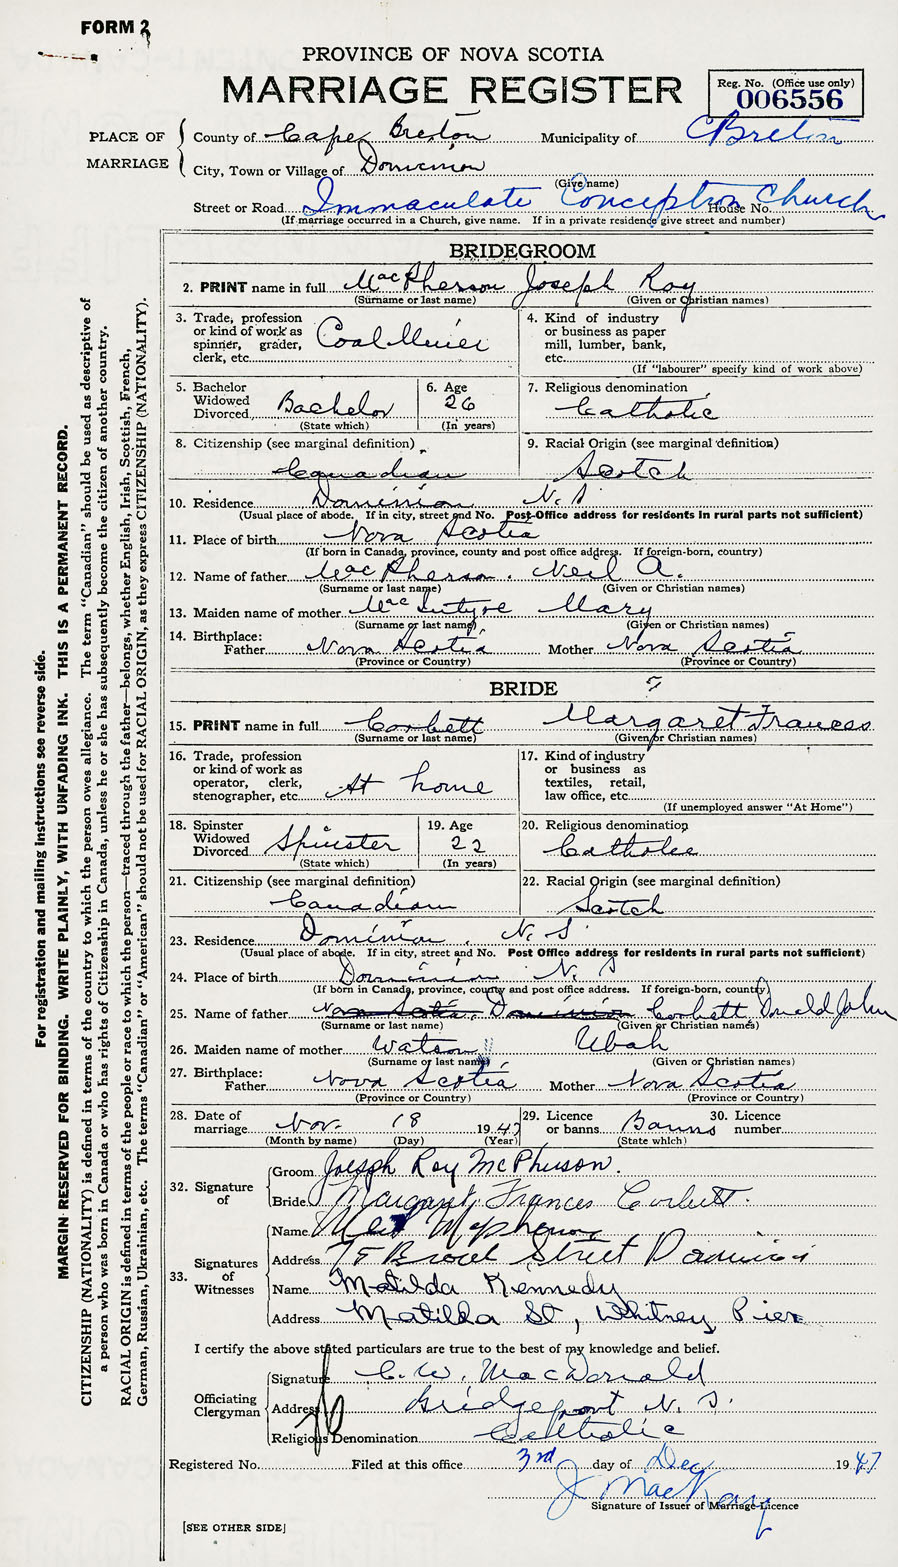 FORM 2
PROVINCE OF NOVA SCOTIA
MARRIAGE REGISTER
Reg. No. (Office use only)
006556
PLACE OF MARRIAGE
County of Cape Breton Municipality of C Breton
City, Town or Village of Dominion
(Give name)
Street or Road Immaculate Conception Church House No.
(If marriage occurred in a Church, give name. If in a private residence give street and number)
BRIDEGROOM
2. PRINT name in full MacPherson Joseph Roy
(Surname or last name) (Given or Christian names)
3. Trade, profession or kind of work as spinner, grader, clerk, etc. Coal Miner
4. Kind of industry or business as paper mill, lumber, bank, etc.
(If "labourer" specify kind of work above)
5. Bachelor Widowed Divorced Bachelor
(State which)
6. Age 26
(In years)
7. Religious denomination Catholic
8. Citizenship (see marginal definition) Canadian
9. Racial Origin (see marginal definition) Scotch
10. Residence Dominion, N.S.
(Usual place of abode. If in city, street and No. Post-Office address for residents in rural parts not sufficient)
11. Place of birth Nova Scotia
(If born in Canada, province, county and post office address. If foreign-born, country)
12. Name of father MacPherson. Neil A.
(Surname or last name) (Given or Christian names)
13. Maiden name of mother MacIntyre Mary
(Surname or last name) (Given or Christian names)
14. Birthplace:
Father Nova Scotia Mother Nova Scotia
(Province or Country) (Province or Country)
BRIDE
15. PRINT name in full Corbett Margaret Frances
(Surname or last name) (Given or Christian names)
16. Trade, profession or kind of work as operator, clerk, stenographer, etc. At home
17. Kind of industry or business as textiles, retail, law office, etc.
(If unemployed answer "At Home")
18. Spinster Widowed Divorced Spinster
(State which)
19. Age 22
(In years)
20. Religious denomination Catholic
21. Citizenship (see marginal definition) Canadian
22. Racial Origin (see marginal definition) Scotch
23. Residence Dominion, N.S.
(Usual place of abode. If in city, street and No. Post Office address for residents in rural parts not sufficient)
24. Place of birth Dominion N.S
(If born in Canada, province, county and post office address. If foreign-born, country)
25. Name of father Nova Scotia, Dominion Corbett Donald John
(Surname or last name) (Given or Christian names)
26. Maiden name of mother Watson Ubah
(Surname or last name) (Given or Christian names)
27. Birthplace:
Father Nova Scotia Mother Nova Scotia
(Province or Country) (Province or Country)
28. Date of marriage Nov. 18 1947
(Month by name) (Day) (Year)
29. Licence or banns Banns
(State which)
30. Licence number
32. Signature of
Groom Joseph Roy McPherson.
Bride Margaret Frances Corbett.
33. Signatures of Witnesses
Name Mcpherson
Address Street Dominion
Name Matilda Kennedy
Address Matilda St, Whitney Pier
I certify the above stated particulars are true to the best of my knowledge and belief.
Officiating Clergyman
Signature C. W. MacDonald
Address Bridgeport N. S.
Religious Denomination Catholic
Registered No. Filed at this office 3rd day of Dec 1947
J MacKay
Signature of Issuer of Marriage Licence
[SEE OTHER SIDE]
For registration and mailing instructions see reverse side.
MARGIN RESERVED FOR BINDING. WRITE PLAINLY, WITH UNFADING INK. THIS IS A PERMANENT RECORD.
CITIZENSHIP (NATIONALITY) is defined in terms of the country to which the person owes allegiance. The term "Canadian" should be used as descriptive of
a person who was born in Canada or who has rights of Citizenship in Canada, unless he or she has subsequently become the citizen of another country.
RACIAL ORIGIN is defined in terms of the people or race to which the person—traced through the father—belongs, whether English, Irish, Scottish, French,
German, Russian, Ukrainian, etc. The terms "Canadian" or "American" should not be used for RACIAL ORIGIN, as they express CITIZENSHIP (NATIONALITY).